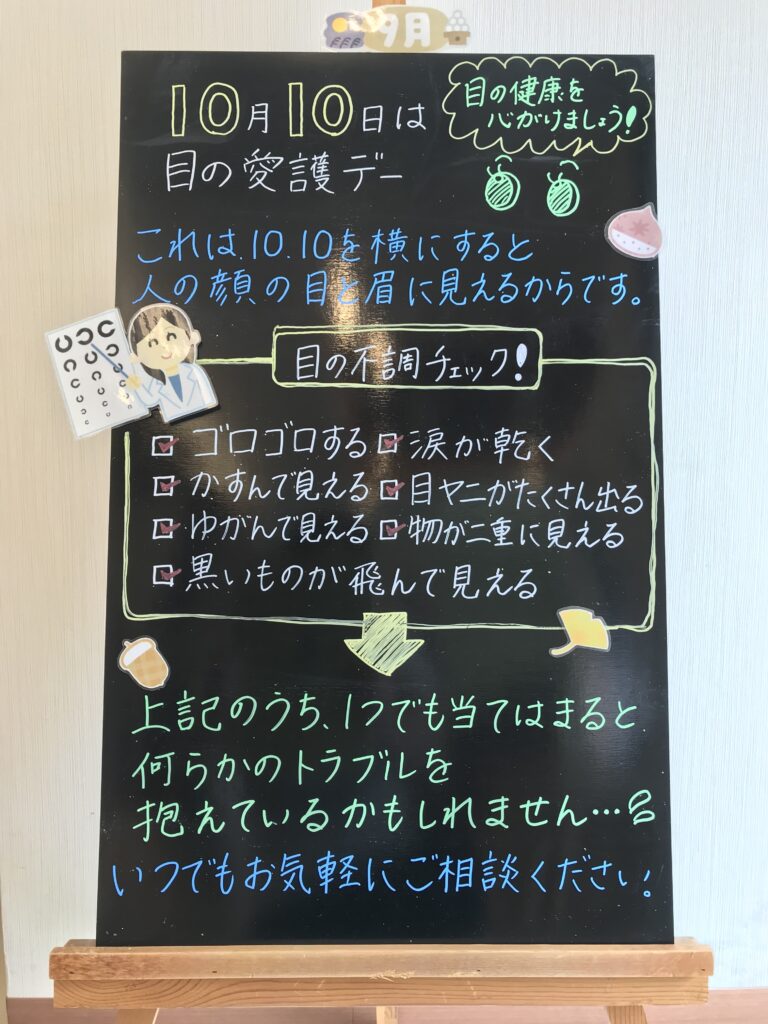 9月
10月10日は
目の愛護デー
目の健康を
心がけましょう!
これは、10.10を横にすると
人の顔の目と眉に見えるからです。
目の不調チェック!
ゴロゴロする 涙が乾く
かすんで見える 目ヤニがたくさん出る
ゆがんで見える 物が二重に見える
黒いものが飛んで見える
上記のうち、1つでも当てはまると
何らかのトラブルを
抱えているかもしれません…
いつでもお気軽にご相談ください!